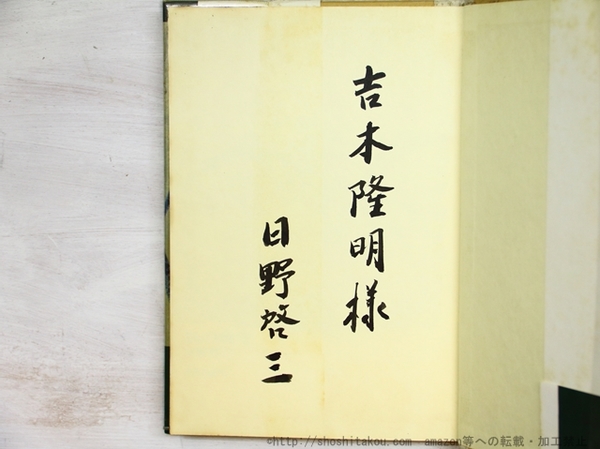 吉本隆明様
日野啓三
©http://shoshitakou.com amazon等への転載・加工禁止